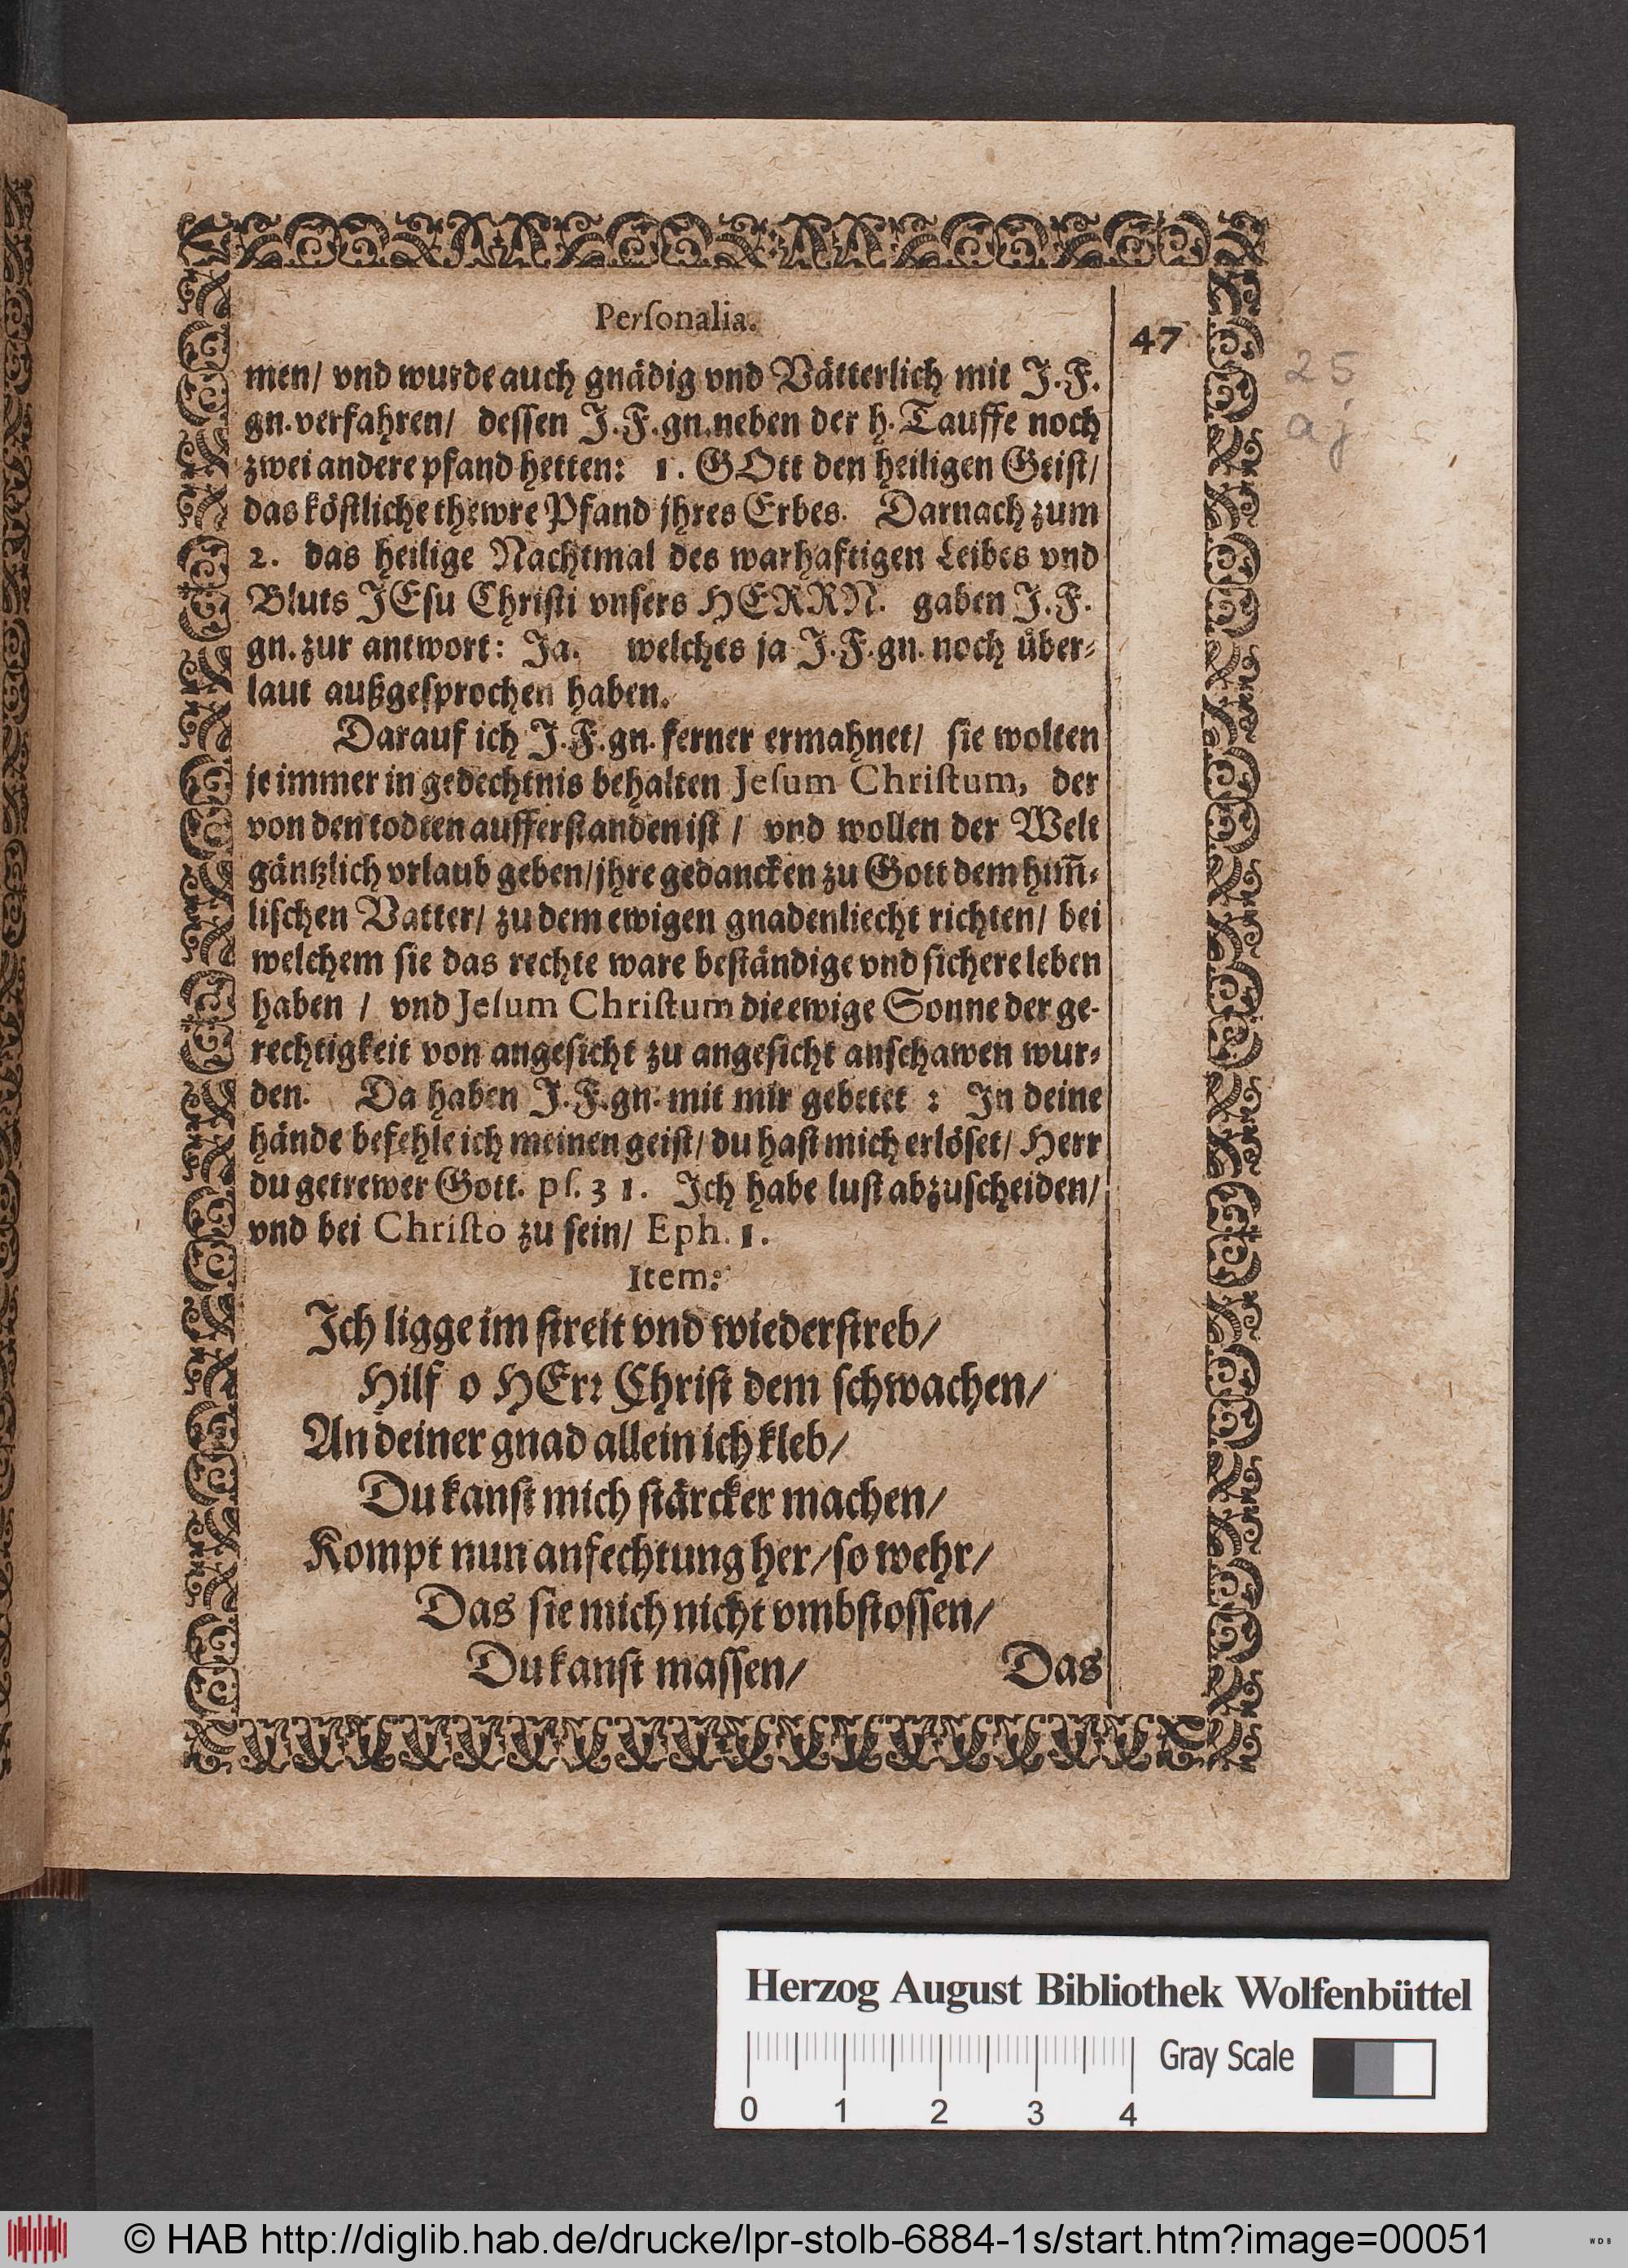 Perſonalia.
47
25
aj
men/ vnd wurde auch gnädig vnd Vätterlich mit J. F.
gn. verfahren/ deſſen J. F. gn. neben der h. Tauffe noch
zwei andere pfand hetten: 1. GOtt den heiligen Geiſt/
das köſtliche thewre Pfand jhres Erbes. Darnach zum
2. das heilige Nachtmal des warhaftigen Leibes vnd
Bluts JEſu Chriſti vnſers HERRN. gaben J. F.
gn. zur antwort: Ja. welches ja J. F. gn. noch über-
laut außgeſprochen haben.
Darauf ich J. F. gn. ferner ermahnet/ ſie wolten
je immer in gedechtnis behalten Jeſum Chriſtum, der
von den todten aufferſtanden iſt / vnd wollen der Welt
gäntzlich vrlaub geben/ jhre gedancken zu Gott dem him̃-
liſchen Vatter/ zu dem ewigen gnadenliecht richten/ bei
welchem ſie das rechte ware beſtändige vnd ſichere leben
haben / vnd Jeſum Chriſtum die ewige Sonne der ge-
rechtigkeit von angeſicht zu angeſicht anſchawen wur-
den. Da haben J. F. gn. mit mir gebetet : In deine
hände befehle ich meinen geiſt/ du haſt mich erlöſet/ Herr
du getrewer Gott. pſ. 31. Ich habe luſt abzuſcheiden/
vnd bei Chriſto zu ſein/ Eph. 1.
Item:
Ich ligge im ſtreit vnd wiederſtreb/
Hilf o HErꝛ Chriſt dem ſchwachen/
An deiner gnad allein ich kleb/
Du kanſt mich ſtärcker machen/
Kompt nun anfechtung her/ ſo wehr/
Das ſie mich nicht vmbſtoſſen/
Du kanſt maſſen/ Das
Herzog August Bibliothek Wolfenbüttel
Gray Scale
0 1 2 3 4
© HAB http://diglib.hab.de/drucke/lpr-stolb-6884-1s/start.htm?image=00051
WDB